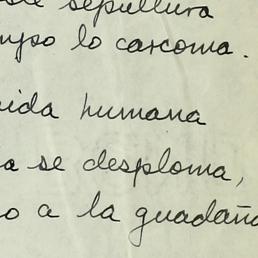 sepultura
mpo lo carcoma.
ida humana
a se desploma,
o a la guadaña